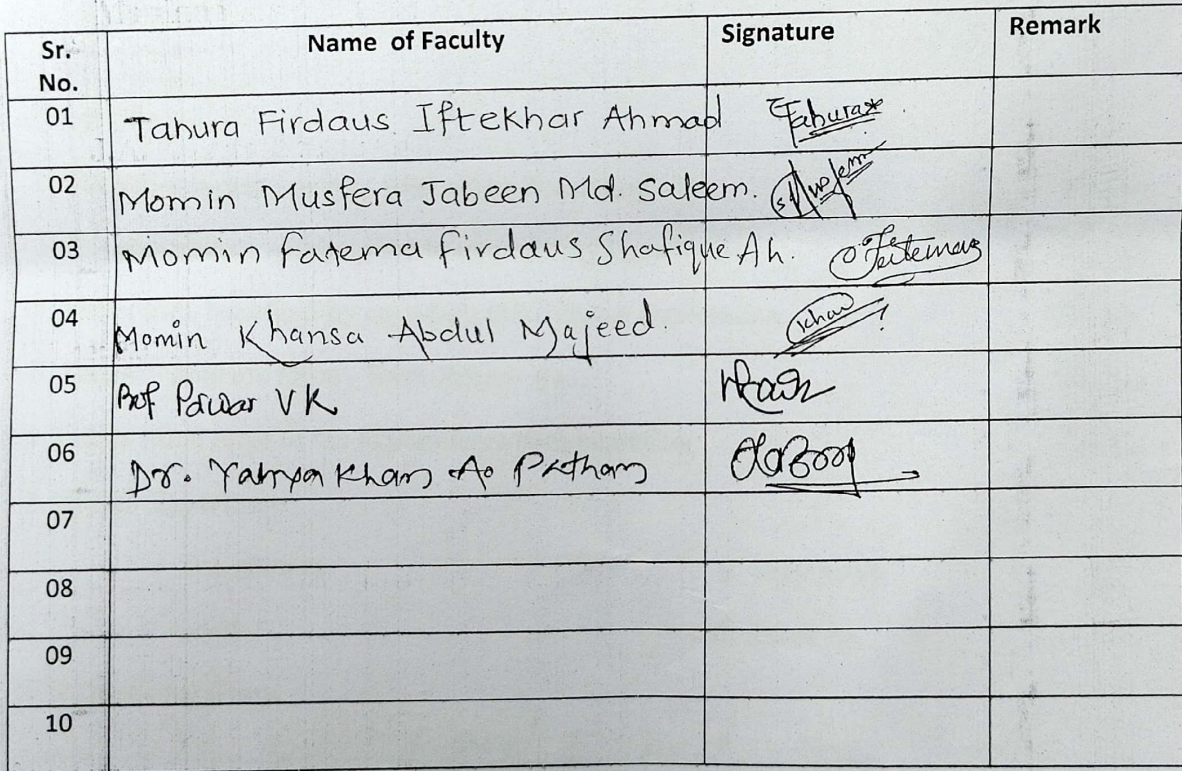 Sr. No. Name of Faculty Signature Remark
01 Tahura Firdaus Iftekhar Ahmad Tahura*
02 Momin Musfera Jabeen Md. Saleem.
03 Momin Fatema Firdaus Shafique Ah. Fatema
04 Momin Khansa Abdul Majeed. Khan
05 Prof Pawar VK
06 Dr. Yahya Khan A. Pathan
07
08
09
10